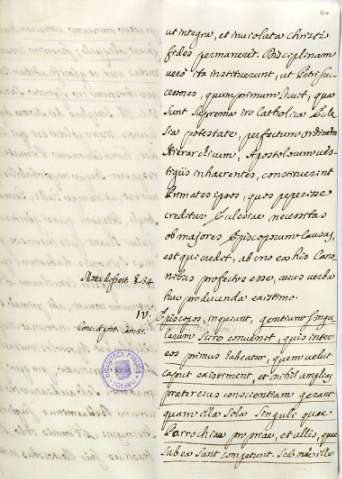 ut integra, et inviolata Christi
fides permaneret. Disciplinam
vero ita instituerunt, ut Petri suc
cessores, quum primum sicut, quae
sunt suprema in Catholica Eccle
sia potestate, perfectum ordinem
Hierarchicum, Apostolorum ves
tigiis inhaerentes, constituerint
Primates Epos, quos peperisse
creditur Ecclesiae necessitas
ob majores Episcoporum causas,
est qui credit, ab ipsis Cano
nibus profectos esse, quus verba
huc producenda existimo.
Marca dissert. §. 34.
IV.
Concil. Antioc.
Episcopos, inquiunt, gentium singu
larum scire convenit, quis inter
eos primus habeatur, quem velut
caput existiment, et nihil amplius
praeter ejus conscientiam gerant
quam illa sola singuli quae
Parrochiae propriae, et villis, quae
sub ea sunt competunt. Sed nec ille
BIBLIOTECA PUBLICA
TOLEDO